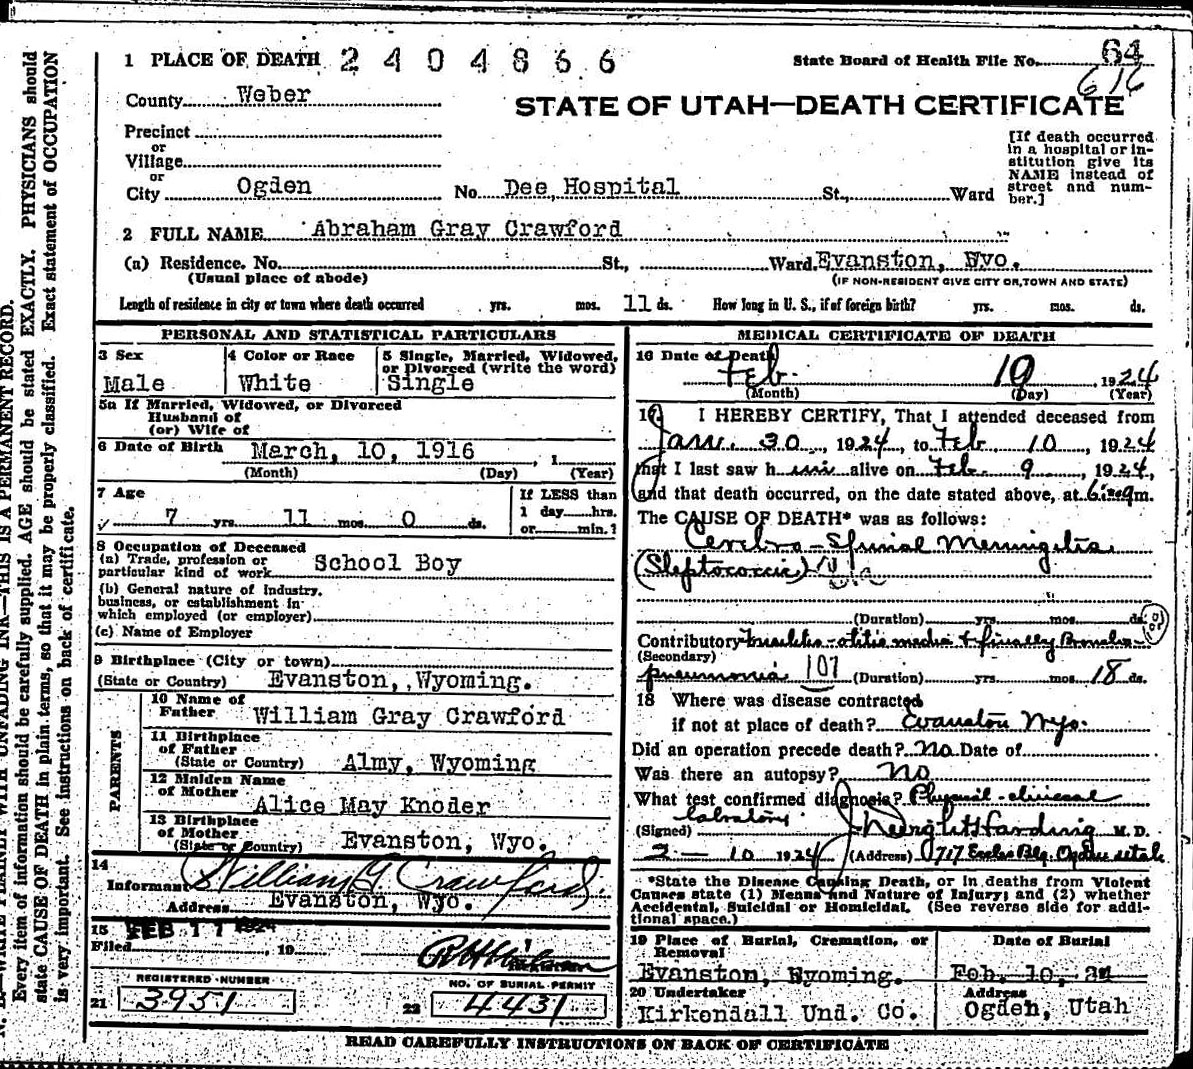 1 PLACE OF DEATH 2404866
State Board of Health File No. 64
616
County Weber
STATE OF UTAH—DEATH CERTIFICATE
Precinct
or
Village
or
City Ogden No. Dee Hospital St., Ward
[If death occurred
in a hospital or in-
stitution give its
NAME instead of
street and num-
ber.]
2 FULL NAME Abraham Gray Crawford
(a) Residence. No. St., Ward. Evanston, Wyo.
(Usual place of abode) (IF NON-RESIDENT GIVE CITY OR TOWN AND STATE)
Length of residence in city or town where death occurred yrs. mos. 11 ds. How long in U. S., if of foreign birth? yrs. mos. ds.
PERSONAL AND STATISTICAL PARTICULARS
3 Sex
Male
4 Color or Race
White
5 Single, Married, Widowed,
or Divorced (write the word)
Single
5a If Married, Widowed, or Divorced
Husband of
(or) Wife of
6 Date of Birth March, 10, 1916 , 1
(Month) (Day) (Year)
7 Age
7 yrs. 11 mos. 0 ds.
If LESS than
1 day hrs.
or min.?
8 Occupation of Deceased
(a) Trade, profession or
particular kind of work School Boy
(b) General nature of industry,
business, or establishment in
which employed (or employer)
(c) Name of Employer
9 Birthplace (City or town)
(State or Country) Evanston, Wyoming.
PARENTS
10 Name of
Father William Gray Crawford
11 Birthplace
of Father
(State or Country) Almy, Wyoming
12 Maiden Name
of Mother
Alice May Knoder
13 Birthplace
of Mother
(State or Country) Evanston, Wyo.
14
Informant William G Crawford
Address Evanston, Wyo.
15 FEB 11 1924
Filed , 19
REGISTERED NUMBER
21 3951
NO. OF BURIAL PERMIT
22 4431
MEDICAL CERTIFICATE OF DEATH
16 Date of Death
Feb. 10 , 1924
(Month) (Day) (Year)
17 I HEREBY CERTIFY, That I attended deceased from
Jan. 30, 1924, to Feb 10, 1924
that I last saw him alive on Feb. 9, 1924,
and that death occurred, on the date stated above, at m.
The CAUSE OF DEATH* was as follows:
Cerebro-Spinal Meningitis
(Steptococcic)
(Duration) yrs. mos. ds.
Contributory otitis media + finally Broncho-
(Secondary)
pneumonia 107 (Duration) yrs. mos. 18 ds.
18 Where was disease contracted
if not at place of death? Evanston Wyo.
Did an operation precede death? No Date of
Was there an autopsy? No
What test confirmed diagnosis? Physical-clinical
labratory
(Signed) J Dwight Harding M. D.
2-10 1924 (Address) 717 Eccles Blg. Ogden Utah
*State the Disease Causing Death, or in deaths from Violent
Causes state (1) Means and Nature of Injury; and (2) whether
Accidental, Suicidal or Homicidal. (See reverse side for addi-
tional space.)
19 Place of Burial, Cremation, or
Removal
Evanston, Wyoming.
Date of Burial
Feb. 10, 24
20 Undertaker
Kirkendall Und. Co.
Address
Ogden, Utah
READ CAREFULLY INSTRUCTIONS ON BACK OF CERTIFICATE
WRITE PLAINLY WITH UNFADING INK—THIS IS A PERMANENT RECORD.
Every item of information should be carefully supplied. AGE should be stated EXACTLY. PHYSICIANS should
state CAUSE OF DEATH in plain terms, so that it may be properly classified. Exact statement of OCCUPATION
is very important. See instructions on back of certificate.